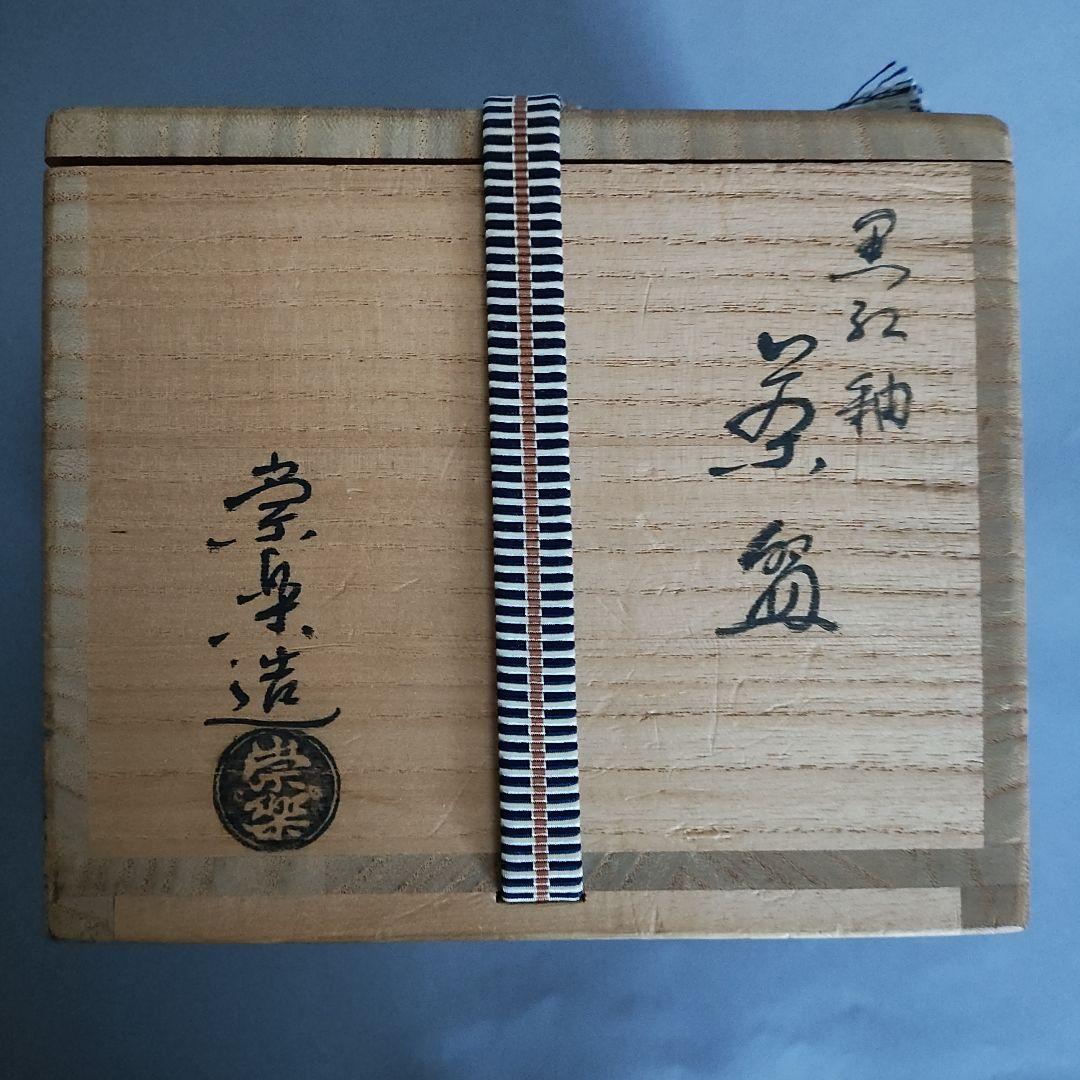 黒紅釉
茶盌
崇楽造
崇樂